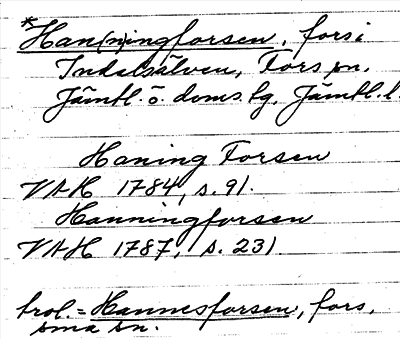 *Han(n)ingforsen, fors i
Indalsälven, Fors sn.
Jämtl. ö. doms.lg, Jämtl. l.
Haning Forsen
VAH 1784, s. 91.
Hanningforsen
VAH 1787, s. 231
trol. = Hannesforsen, fors,
sma sn.